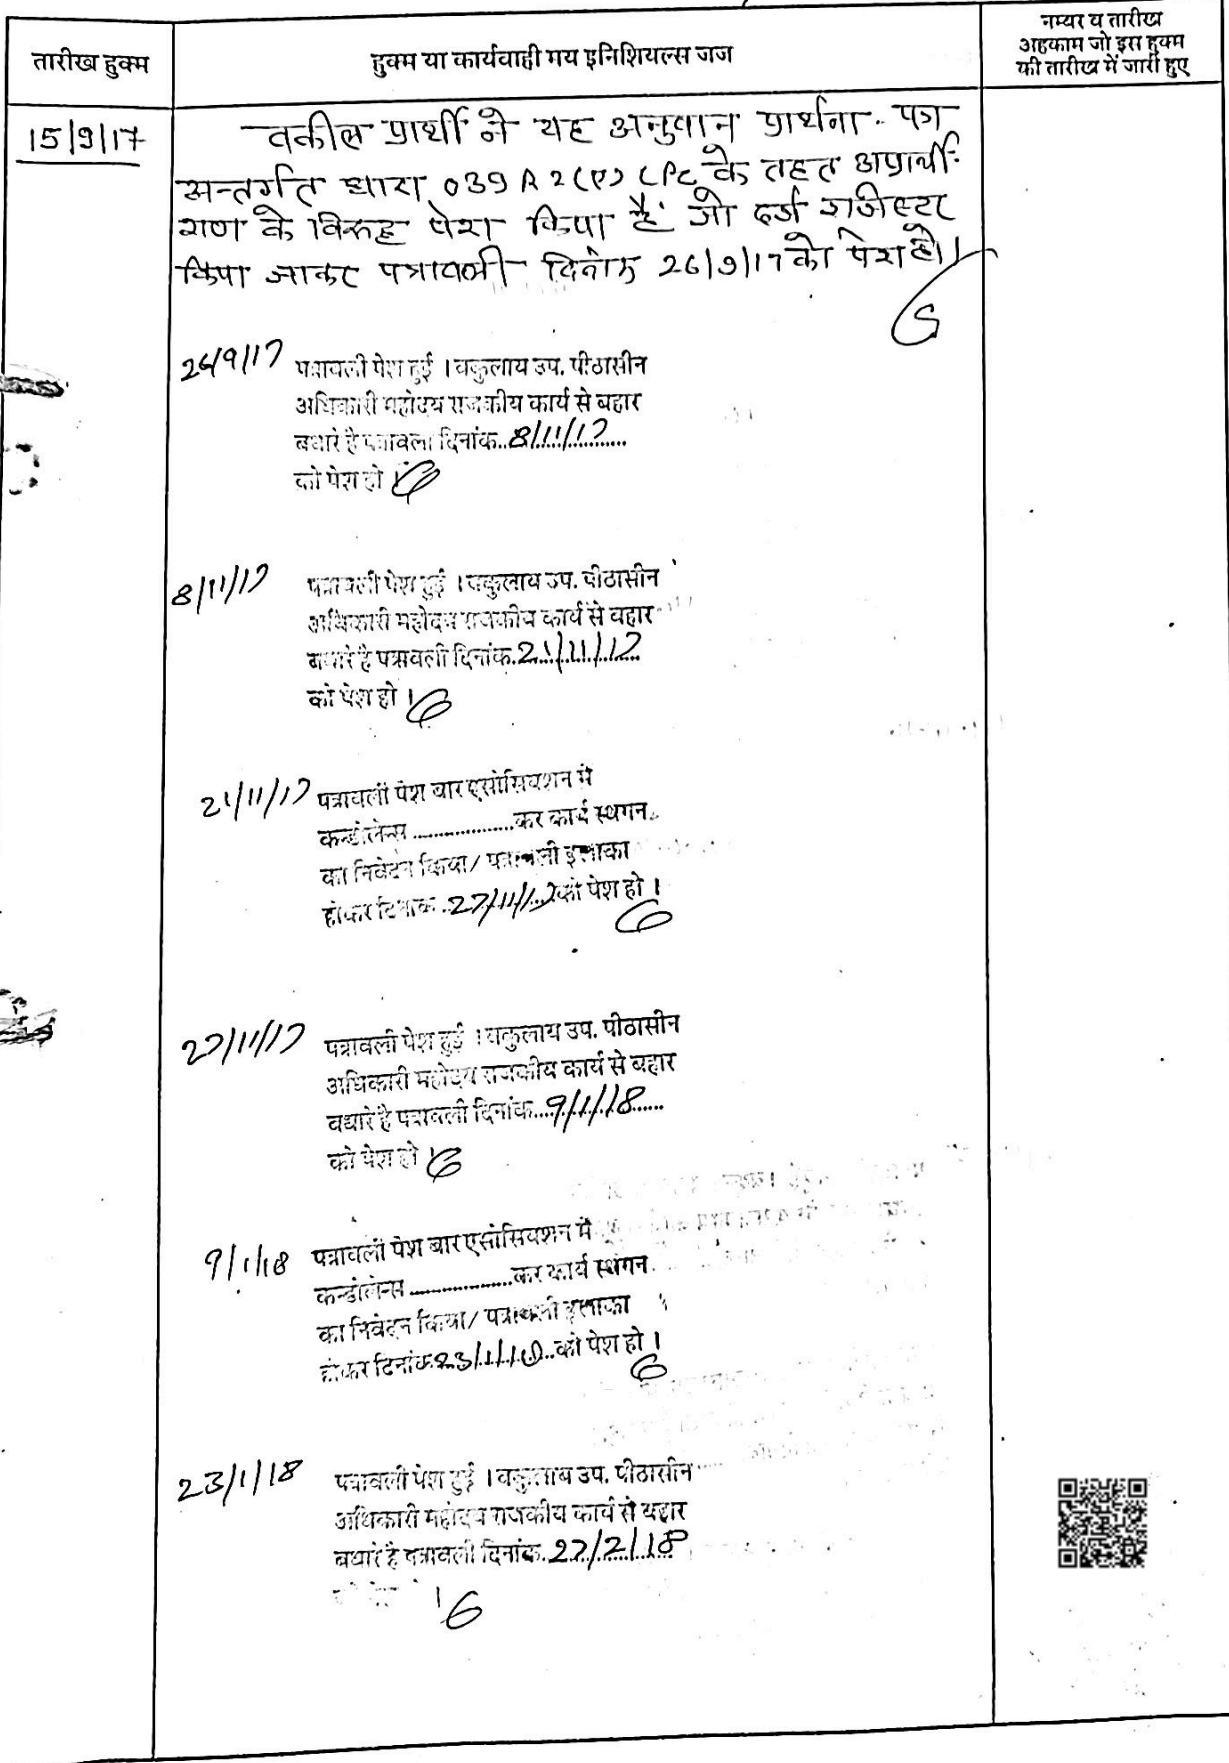 तारीख हुक्म
हुक्म या कार्यवाही मय इनिशियल्स जज
नम्बर व तारीख
अहकाम जो इस हुक्म
की तारीख में जारी हुए
15/9/17
वकील प्रार्थी ने यह अनुवान प्रार्थना-पत्र
अन्तर्गत धारा 039 R 2(ए) CPC के तहत अप्रार्थी-
गण के विरुद्ध पेश किया है। जो दर्ज रजिस्टर
किया जाकर पत्रावली दिनांक 26/9/17 को पेश हो।
26/9/17 पत्रावली पेश हुई । वकुलाय उप. पीठासीन
अधिकारी महोदय राजकीय कार्य से बहार
बधारे है पत्रावली दिनांक..8/11/17......
को पेश हो ।
8/11/17 पत्रावली पेश हुई । वकुलाय उप. पीठासीन
अधिकारी महोदय राजकीय कार्य से बहार
बधारे है पत्रावली दिनांक.21/11/17
को पेश हो ।
21/11/17 पत्रावली पेश बार एसोसियशन मे
कन्डोलेन्स ...................कर कार्य स्थगन..
का निवेदन किया/ पत्रावली इलाका
होकर दिनांक..27/11/17को पेश हो ।
27/11/17 पत्रावली पेश हुई । वकुलाय उप. पीठासीन
अधिकारी महोदय राजकीय कार्य से बहार
बधारे है पत्रावली दिनांक...9/1/18......
को पेश हो
9/1/18 पत्रावली पेश बार एसोसियशन मे
कन्डोलेन्स ...................कर कार्य स्थगन.
का निवेदन किया/ पत्रावली इलाका
होकर दिनांक.23/1/18..को पेश हो ।
23/1/18 पत्रावली पेश हुई । वकुलाय उप. पीठासीन
अधिकारी महोदय राजकीय कार्य से बहार
बधारे है पत्रावली दिनांक.27/2/18